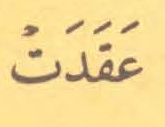 عَقَدَتْ